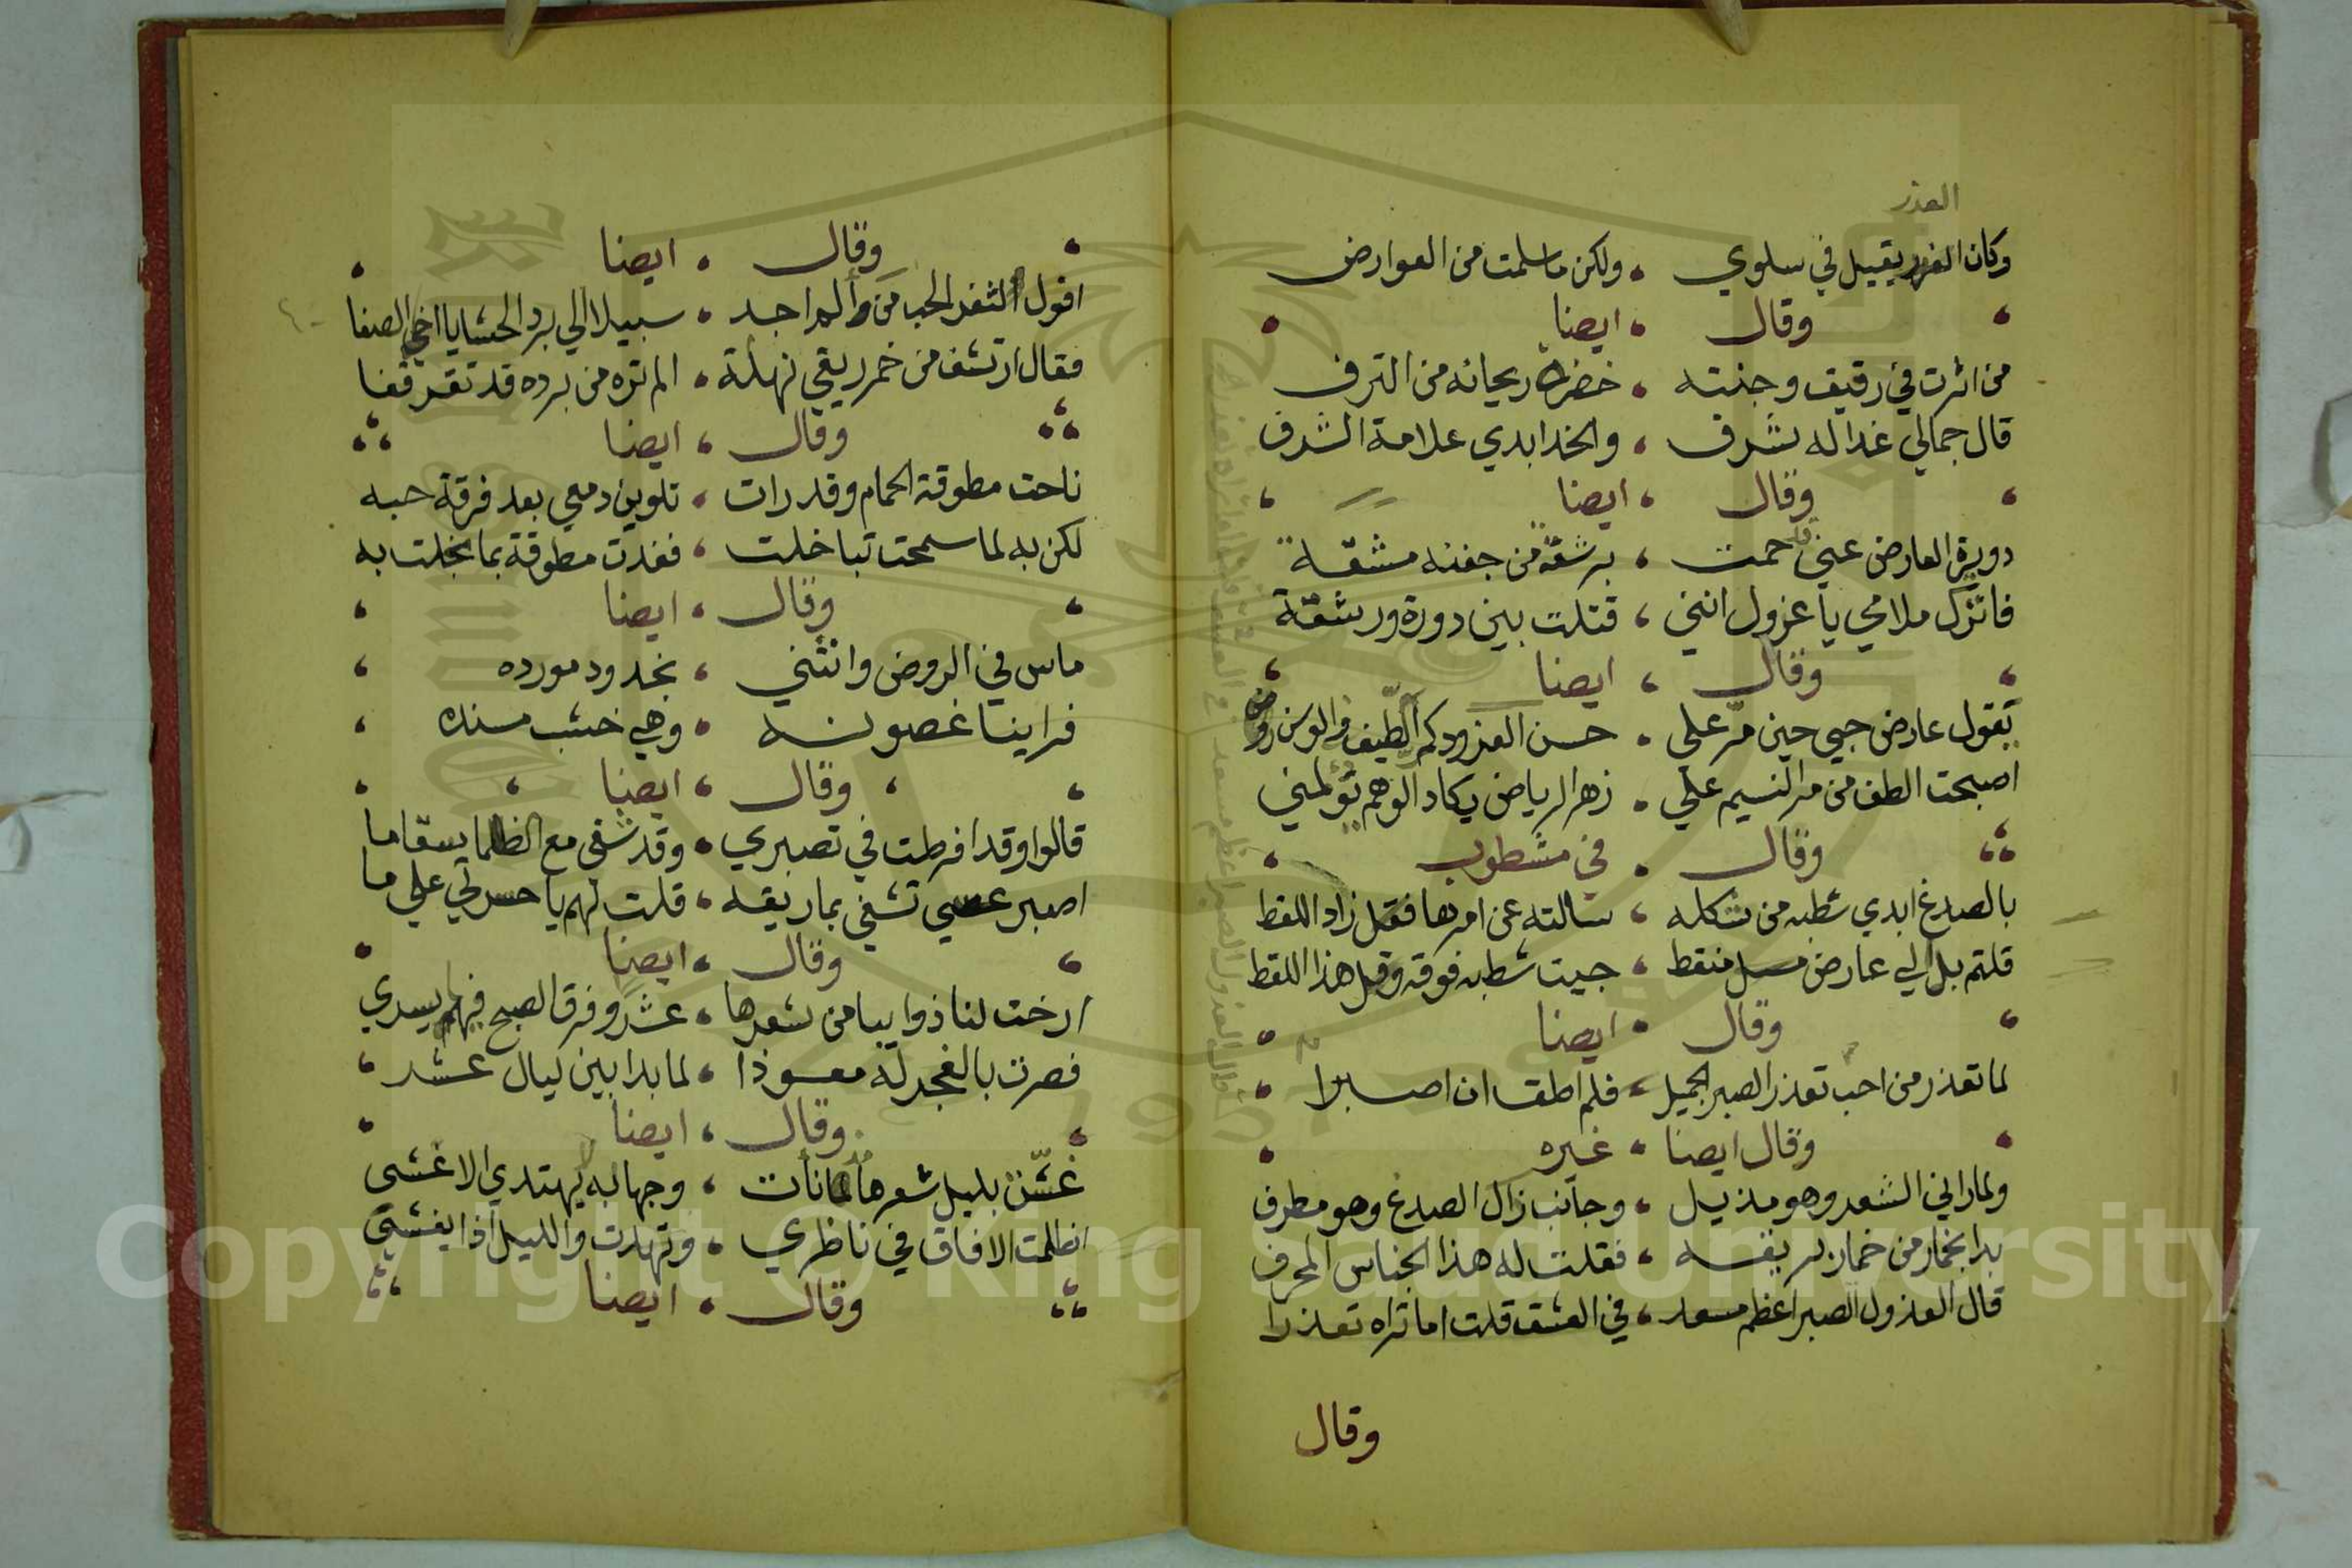 العذر
وكان الغر يقبيل في سلوي ، ولكن ما سلمت من العوارض
وقال ، ايضا
من اثرت في رقيق وجنته ، خضرة ريحانه من الترف
قال جمالي غدا له شرف ، والخد ابدي علامة الشرف
وقال ، ايضا
دويرة العارض عني قد حمت ، برشقة من جفنه مشقه
فاترك ملامي يا عزول انني ، قتلت بين دورة ورشقة
وقال ، ايضا
تقول عارض حبي حين مر علي ، حسن العذرودكم الطيف والوسن
اصبحت الطف من مر النسيم علي ، زهر الرياض يكاد الوهم تؤلمني
وقال ، في مشطوب
بالصدغ ابدي شطبه من شكله ، سالته عن امرها فقل زاد اللغط
قلتم بل لي عارض مسل منقط ، جيت شطبه فوقه وقل هذا اللقط
وقال ، ايضا
لما تعذر من احب تعذر الصبر الجميل ، فلم اطق ان اصبرا
وقال ايضا ، غيره
ولما راني الشعر وهو مذيل ، وجانب زال الصدغ وهو مطرف
بدا بخمار من خمار بريقه ، فقلت له هذا الجناس المحرف
قال العذول الصبر اعظم مسعد ، في العشق قلت اما تراه تعذرا
وقال
وقال ، ايضا
اقول لثغر الحب من ولم اجد ، سبيلا الي برد الحشايا اخي الصفا
فقال ارتشف من خمر ريقي نهلة ، الم تره من برده قد تقرقفا
وقال ، ايضا
ناحت مطوقة الحمام وقد رات ، تلوين دمعي بعد فرقة حبه
لكن به لما سمحت تباخلت ، فغدت مطوقة بما بخلت به
وقال ، ايضا
ماس في الروض وانثني ، بخدود مورده
فراينا غصونه ، وهي خشب مسنده
وقال ، ايضا
قالوا وقد افرطت في تصبري ، وقد شفي مع الظلما سقاما
اصبر عسي تشفي بما ريقه ، قلت لهم يا حسرتي علي ما
وقال ، ايضا
ارخت لنا ذوايبا من شعرها ، عشر وفرق الصبح فيهم يسري
فصرت بالفجر له معوذا ، لما بدا بين ليال عشر
وقال ، ايضا
غشت بليل شعرها لما نات ، وجها به يهتدي الاغشي
اظلمت الافاق في ناظري ، وتهدت والليل اذا يغشي
وقال ، ايضا
Copyright © King Saud University